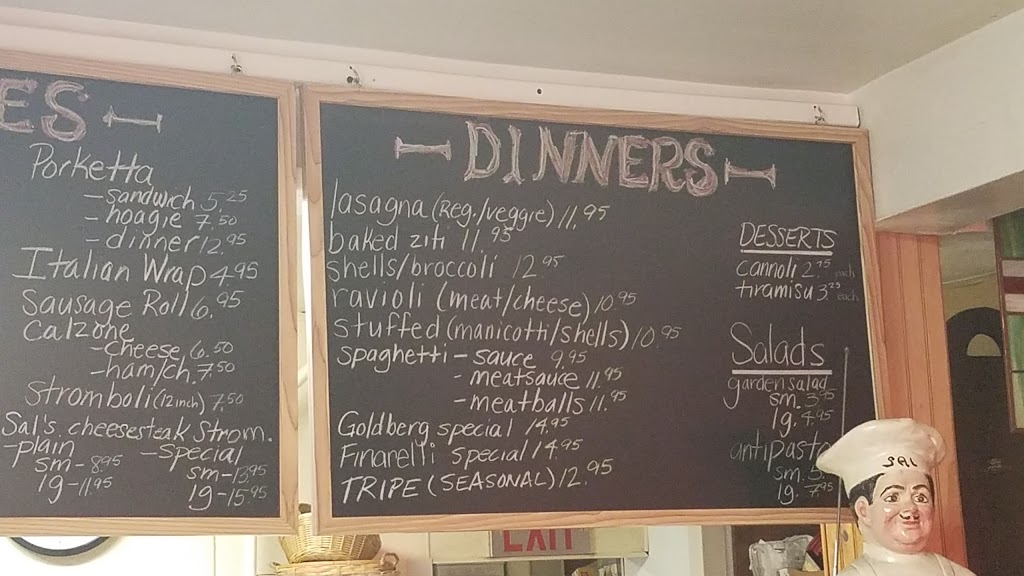 ES
Porketta
- sandwich 5.25
- hoagie 7.50
- dinner 12.95
Italian Wrap 4.95
Sausage Roll 6.95
Calzone
- cheese 6.50
- ham/ch. 7.50
Stromboli (12 inch) 7.50
Sal's cheesesteak Strom.
- plain - special
sm - 8.95 sm - 13.95
lg - 11.95 lg - 15.95
DINNERS
lasagna (Reg./veggie) 11.95
baked ziti 11.95
shells/broccoli 12.95
ravioli (meat/cheese) 10.95
stuffed (manicotti/shells) 10.95
spaghetti - sauce 9.95
- meatsauce 11.95
- meatballs 11.95
Goldberg special 14.95
Finarelli special 14.95
TRIPE (SEASONAL) 12.95
DESSERTS
cannoli 2.75 each
tiramisu 3.25 each
Salads
garden salad
sm. 3.95
lg. 4.95
antipasto
sm.
lg. 7.95
SAL
EXIT